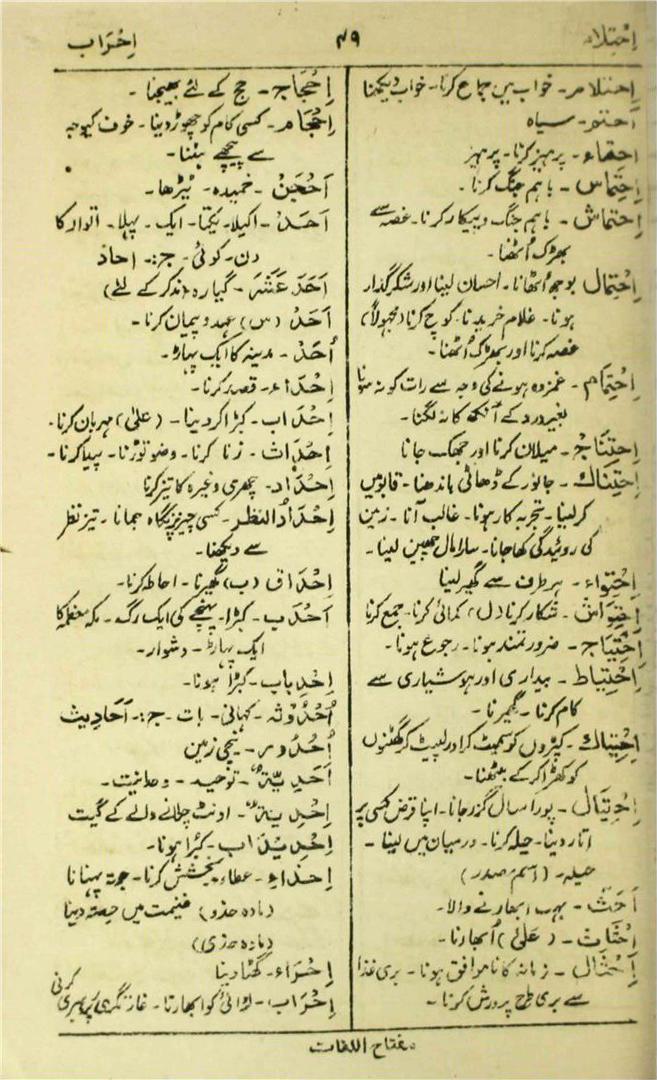 اِحْتِلَام ۴۹ اِحْرَاب
اِحتلام۔ خواب میں جماع کرنا۔ خواب دیکھنا
اَحتو۔ سیاہ
احتماء۔ پرہیز کرنا۔ پرہیز
اِحْتِماس۔ باہم جنگ کرنا۔
اِحتماش۔ باہم جنگ وپیکار کرنا۔ غصہ سے
بھڑک اُٹھنا۔
اِحْتِمال بوجھ اُٹھانا۔ احسان لینا اور شکر گذار
ہونا۔ غلام خریدنا۔ کوچ کرنا (مجہولاً)
غصہ کرنا اور بھڑک اُٹھنا۔
اِحْتِمام۔ غمزدہ ہونے کی وجہ سے رات کو نہ سونا
بغیر درد کے آنکھ کا نہ لگنا۔
اِحتِناج۔ میلان کرنا اور جھک جانا
اِحتِناك۔ جانور کے ڈھاٹی باندھنا۔ قابو میں
کر لینا۔ تجربہ کار ہونا۔ غالب آنا۔ زمین
کی روئیدگی کھا جانا۔ سارا مال چھین لینا۔
اِحْتِواء۔ ہر طرف سے گھیر لینا
اِحتِواش۔ شکار کرنا (ل) کمائی کرنا۔ جمع کرنا
اِحْتِيَاج۔ ضرورتمند ہونا۔ رجوع ہونا۔
اِحْتِیاط۔ بیداری اور ہوشیاری سے
کام کرنا۔ گھیرنا۔
اِحْتِباك۔ کپڑوں کو سمیٹ کر اور لپیٹ کر گھٹنوں
کو کھڑا کر کے بیٹھنا۔
اِحْتِیَال۔ پورا سال گزر جانا۔ اپنا قرض کسی پر
اتار دینا۔ حیلہ کرنا۔ درمیان میں لینا۔
حیلہ۔ (اسم مصدر)
اَحَثّ۔ بہت ابھارنے والا۔
اِحْثاث۔ (عَلیٰ) اُبھارنا۔
اِحْثال۔ زمانہ کا ناموافق ہونا۔ بری غذا
سے بری طرح پرورش کرنا۔
اِحْجَاج۔ حج کے لئے بھیجنا۔
اِحْجَام۔ کسی کام کو چھوڑ دینا۔ خوف کیوجہ
سے پیچھے ہٹنا۔
اَحْجَن۔ خمیدہ۔ ٹیڑھا۔
اَحَدْ۔ اکیلا۔ یکتا۔ ایک۔ پہلا۔ اتوار کا
دن۔ کوئی۔ ج:۔ احاد
اَحَدَ عَشَرَ۔ گیارہ (مذکر کے لئے)
اَحَدْ (س) عہد و پیمان کرنا۔
اُحُدْ۔ مدینہ کا ایک پہاڑ۔
اِحْدَاء۔ قصد کرنا۔
اِحْدَاب۔ کبڑا کر دینا۔ (علیٰ) مہربان کرنا۔
اِحْدَاث۔ زنا کرنا۔ وضو توڑنا۔ پیدا کرنا۔
اِحْدَاد۔ چھری وغیرہ کا تیز کرنا
اِحْدَادُ النظر۔ کسی چیز پر نگاہ جمانا۔ تیز نظر
سے دیکھنا۔
اِحْدَاق (ب) گھیرنا۔ احاطہ کرنا۔
اَحْدَب۔ کبڑا۔ پہنچے کی ایک رگ۔ مکہ معظمہ کا
ایک پہاڑ۔ دشوار۔
اِحْدِباب۔ کبڑا ہونا۔
اُحْدُوثہ۔ کہانی۔ بات۔ ج:۔ اَحَادِیث
اُحْدُور۔ نیچی زمین
اَحَدِیَّة۔ توحید۔ وحدانیت۔
اِحْدِیَة۔ اونٹ چلانے والے کے گیت
اِحْدِیْدَاب۔ کبڑا ہونا۔
اِحْذَاء۔ عطاء بخشش کرنا۔ جوتہ پہنانا
(مادہ حذو) غنیمت میں حصتہ دینا
(مادہ حذی)
اِحْرَاء۔ گھٹا دینا
اِحْرَاب۔ لڑائی کو ابھارنا۔ غارتگری پر رہبری کرنی
مفتاح اللغات